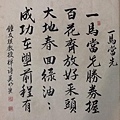 一馬當先
一馬當先勝券握
百花齊放好采頭
大地春回綠油
成功在望前程有